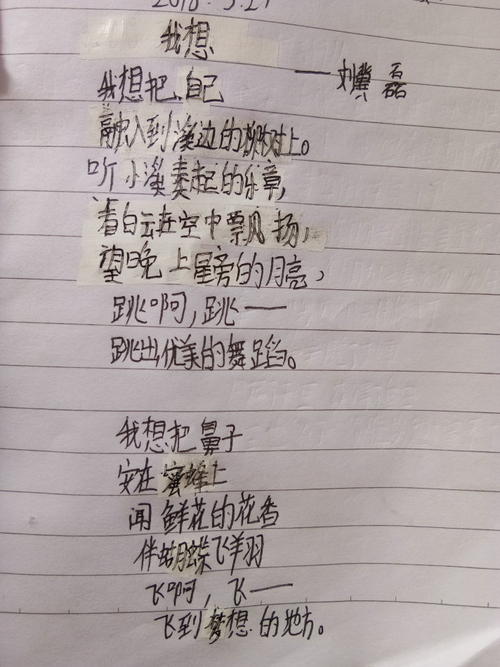 我想
——刘冀磊
我想把自己
融入到溪边的柳树上。
听小溪奏起的乐章,
看白云在空中飘扬,
望晚上星旁的月亮,
跳啊,跳——
跳出优美的舞蹈。
我想把鼻子
安在蜜蜂上
闻鲜花的花香
伴蝴蝶飞翔
飞啊,飞——
飞到梦想的地方。